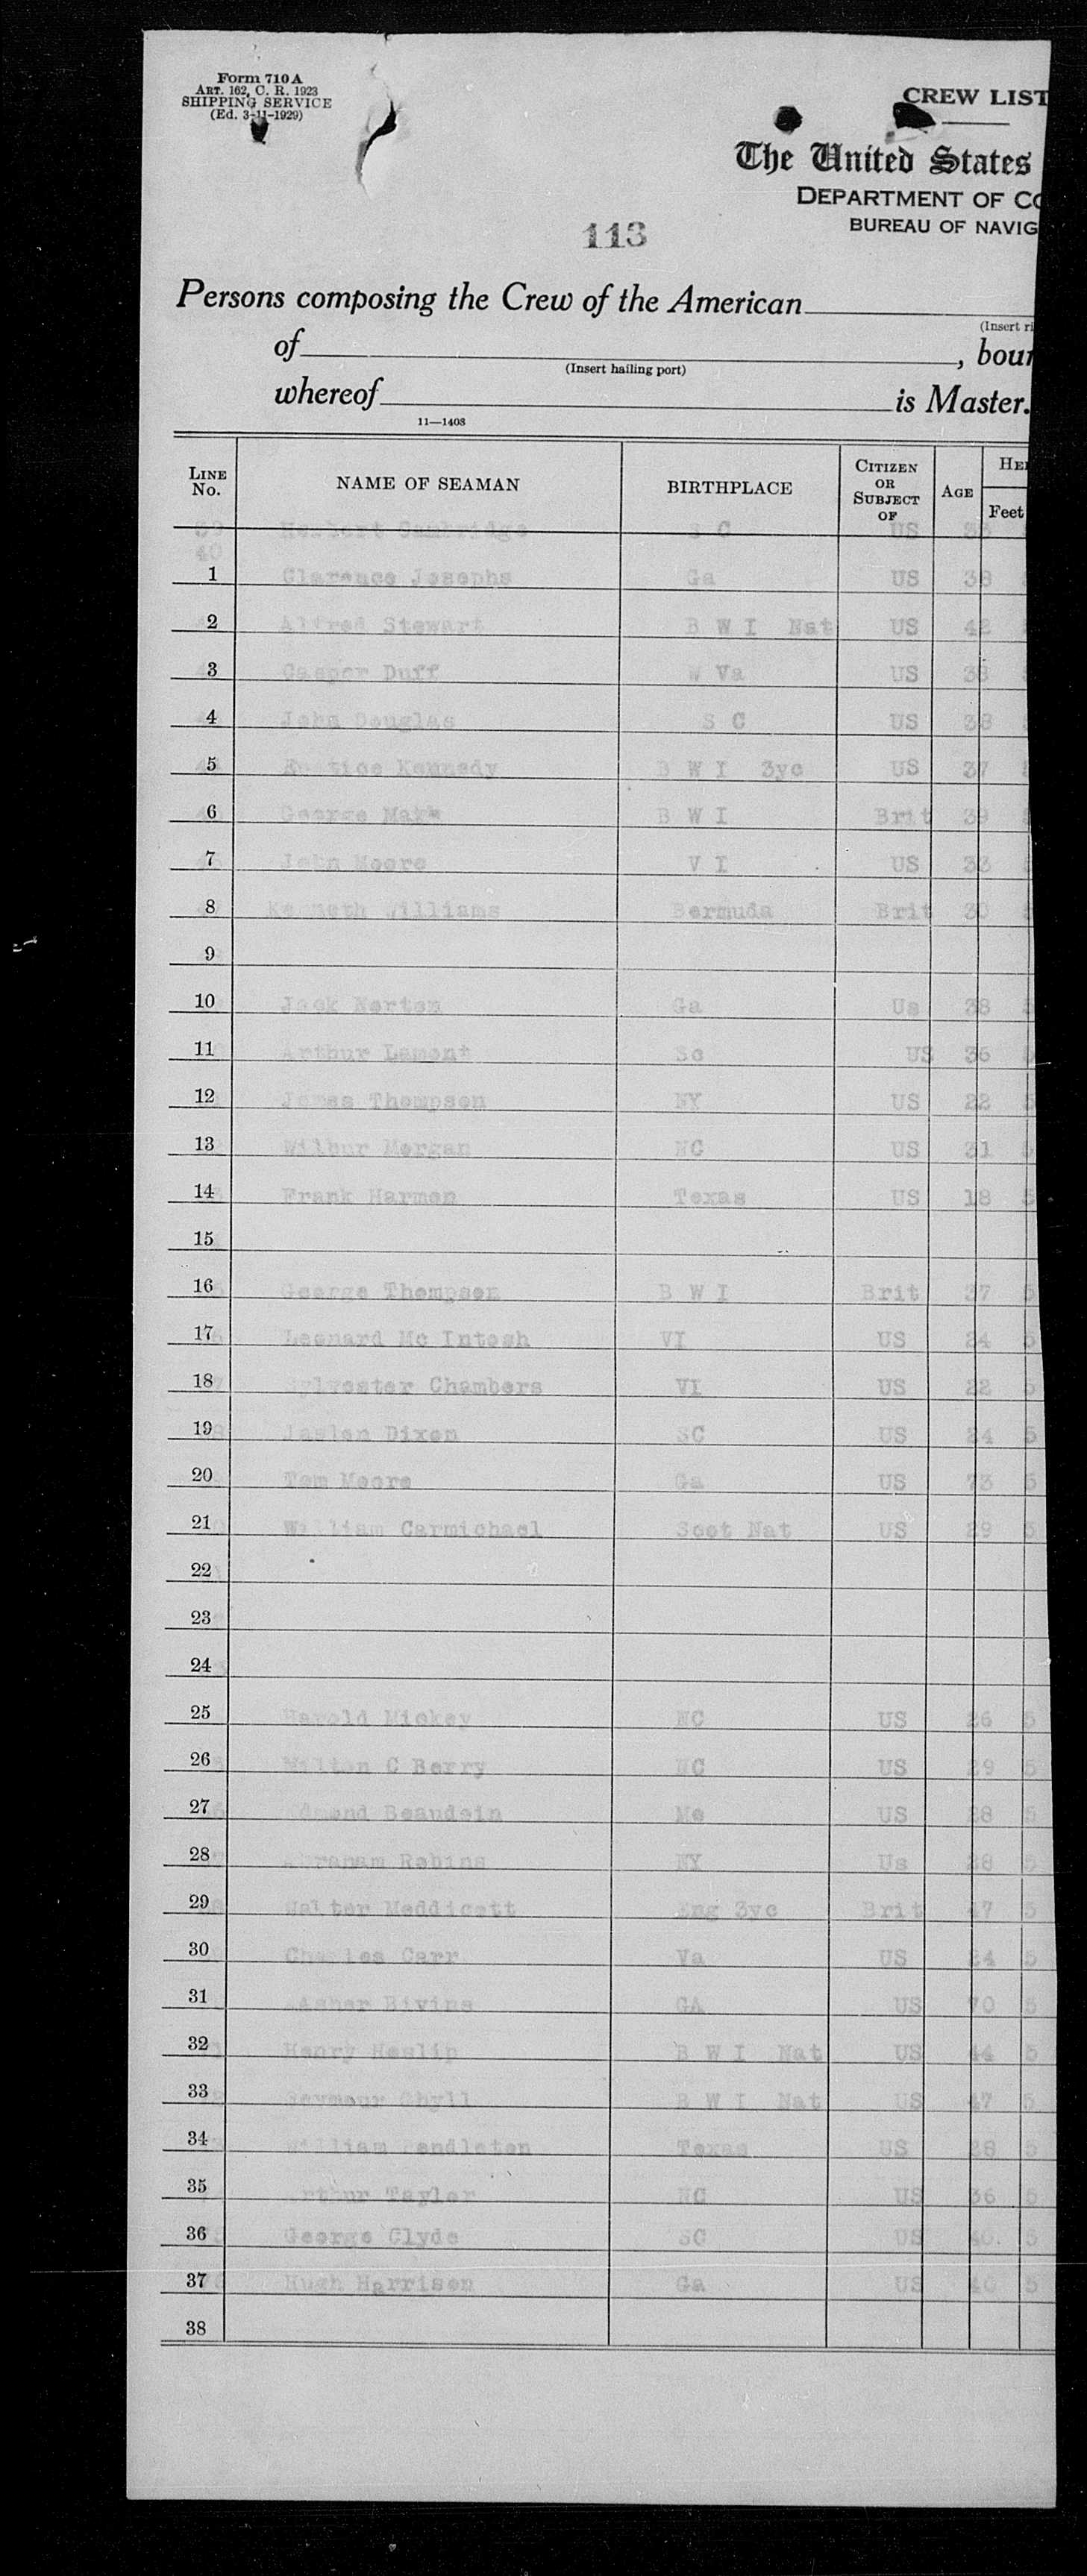 Form 710 A
ART. 162, C. R. 1923
SHIPPING SERVICE
(Ed. 3-11-1929)
CREW LIST
The United States
DEPARTMENT OF CO
BUREAU OF NAVIG
113
Persons composing the Crew of the American
(Insert ri
of , bour
(Insert hailing port)
whereof is Master.
11—1408
LINE No. NAME OF SEAMAN BIRTHPLACE CITIZEN OR SUBJECT OF AGE HEI Feet
39 Herbert Cambridge S C US
40
1 Clarence Josephs Ga US 38
2 Alfred Stewart B W I Nat US 42
3 Casper Duff W Va US 38
4 John Douglas S C US 38
5 Kennedy B W I 3yc US 37
6 George B W I Brit 39
7 John Moore V I US 33
8 Kenneth Williams Bermuda Brit 30
9
10 Jack Norton Ga Us 38 5
11 Arthur Lamont So US 36
12 James Thompson NY US 22 5
13 Wilbur Morgan NC US 31 5
14 Frank Harmon Texas US 18 5
15
16 George Thompson B W I Brit 37 5
17 Leonard Mc Intosh VI US 24 5
18 Sylvester Chambers VI US 22 5
19 Dixon SC US 24 5
20 Tom Moore Ga US 5
21 William Carmichael Scot Nat US 29 5
22
23
24
25 Harold Mickey NC US 26 5
26 Milton C Berry NC US 29 5
27 Edmond Beaudoin Me US 28 5
28 Abraham Robins NY Us 28 5
29 Walter Meddicott Eng 3yc Brit 47 5
30 Charles Carr Va US 24 5
31 Bivins GA US 5
32 Henry Heslip B W I Nat US 44 5
33 Seymour Ghyll B W I Nat US 47 5
34 William Pendleton Texas US 28 5
35 Arthur Taylor NC US 36 5
36 George Clyde SC US 40 5
37 Hugh Harrison Ga US 40 5
38